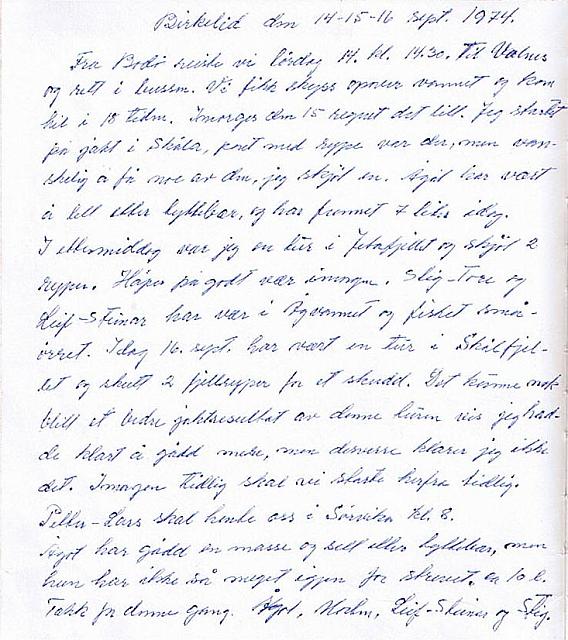 Birkelid den 14-15-16 sept. 1974.
Fra Bodø reiste vi lørdag 14. kl. 14.30. Til Valnes
og rett i bussen. Vi fikk skyss opover vannet og kom
hit i 18 tiden. Imorges den 15 regnet det litt. Jeg startet
på jakt i Skåla, port med rype var der, men van-
skelig å få noe av dem, jeg skjøt en. Ågot har vært
å lett etter tyttebær, og har funnet 7 liter idag.
I ettermiddag var jeg en tur i fjellet og skjøt 2
ryper. Håper på godt vær imorgen. Stig-Tore og
Leif-Steinar har vær i Ågvannet og fisket små-
ørret. Idag 16. sept. har vært en tur i Skålfjel-
let og skutt 2 fjellryper for et skudd. Det kunne nok
blitt et bedre jaktresultat av denne turen vis jeg had-
de klart å gådd mere, men desverre klarer jeg ikke
det. Imorgen tidlig skal vi starte herfra tidlig.
Petter-Lars skal hente oss i Sørvika kl. 8.
Ågot har gådd en masse og lett etter tyttebær, men
hun har ikke så meget igjen for strevet. ca 10 l.
Takk for denne gang. Ågot, Holm, Leif-Steinar og Stig.